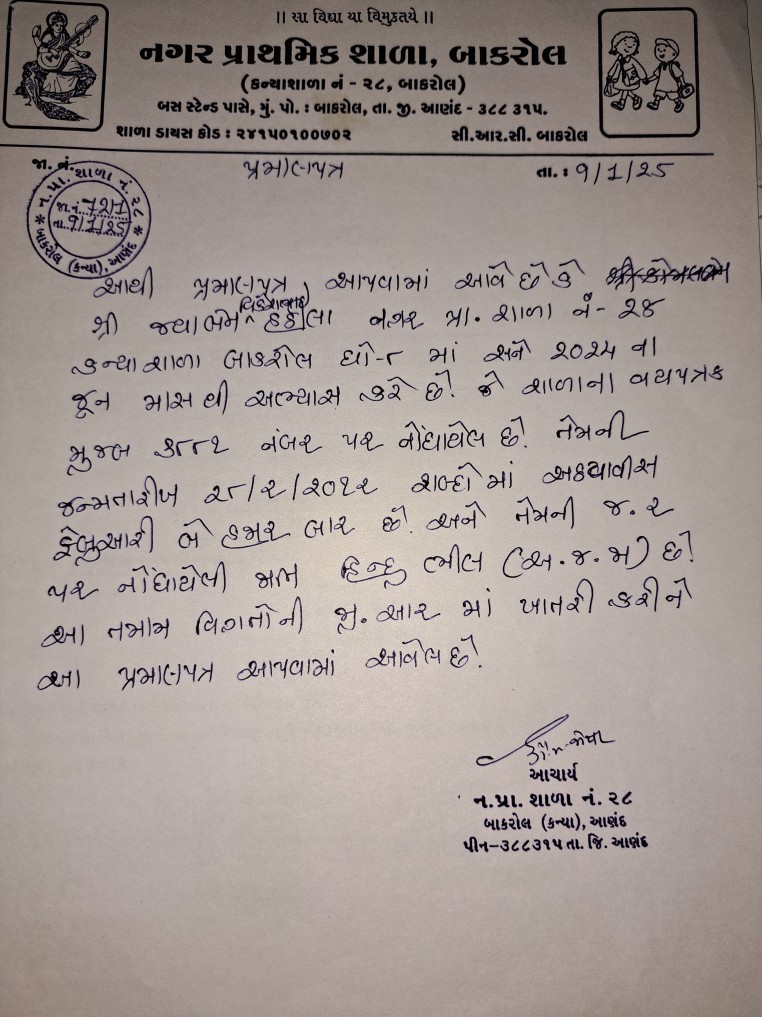 || સા વિદ્યા યા વિમુક્તયે ||
નગર પ્રાથમિક શાળા, બાકરોલ
(કન્યાશાળા નં - ૨૮, બાકરોલ)
બસ સ્ટેન્ડ પાસે, મું. પો. : બાકરોલ, તા. જી. આણંદ - ૩૮૮ ૩૧૫.
શાળા ડાયસ કોડ : ૨૪૧૫૦૧૦૦૭૦૨ સી.આર.સી. બાકરોલ
જા. નં. પ્રમાણપત્ર તા. : 9/1/25
ન. પ્રા. શાળા નં. ૨૮
જા.નં. 727
તા. 9/1/25
બાકરોલ (કન્યા), આણંદ
આથી પ્રમાણપત્ર આપવામાં આવે છે કે
શ્રી જયાબેન નગર પ્રા. શાળા નં - ૨૮
કન્યાશાળા બાકરોલ ધો-૮ માં સને ૨૦૨૪ ના
જૂન માસ થી અભ્યાસ કરે છે. જે શાળાના વયપત્રક
મુજબ ૩૮૮૧ નંબર પર નોંધાયેલ છે. તેમની
જન્મતારીખ ૨૮/૨/૨૦૧૨ શબ્દોમાં અઠયાવીસ
ફેબ્રુઆરી બે હજાર બાર છે. અને તેમની જ. ર
પર નોંધાયેલી જાત હિન્દુ ભીલ (અ.જ.જા) છે.
આ તમામ વિગતોની જી. આર માં ખાતરી કરીને
આ પ્રમાણપત્ર આપવામાં આવેલ છે.
આચાર્ય
ન.પ્રા. શાળા નં. ૨૮
બાકરોલ (કન્યા), આણંદ
પીન-૩૮૮૩૧૫ તા. જિ. આણંદ